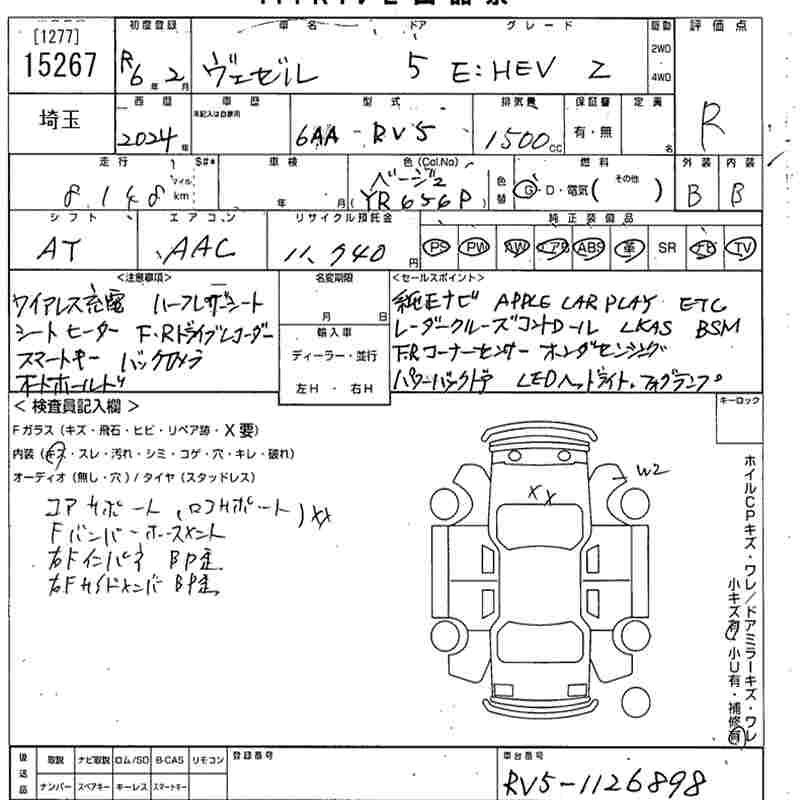 [1277]
15267
初度登録
R6 年 2 月
車名
ヴェゼル
ドア
5
グレード
E:HEV Z
駆動
2WD
4WD
評価点
R
埼玉
西暦
2024 年
車歴
未記入は自家用
型式
6AA - RV5
排気量
1500 CC
保証書
有・無
定員
名
走行
8,148
マイル
km
S#*
車検
年 月
色(Col.No)
ベージュ
(YR656P)
色替
燃料
G・D・電気( その他 )
外装
B
内装
B
シフト
AT
エアコン
AAC
リサイクル預託金
11,940 円
純正装備品
PS PW AW エアB ABS 革 SR ナビ TV
<注意事項>
ワイアレス充電 ハーフレザーシート
シートヒーター F・Rドライブレコーダー
スマートキー バックカメラ
オートホールド
名変期限
月 日
輸入車
ディーラー・並行
左H ・ 右H
<セールスポイント>
純正ナビ APPLE CAR PLAY ETC
レーダークルーズコントロール LKAS BSM
F.Rコーナーセンサー ホンダセンシング
パワーバックドア LEDヘッドライト.フォグランプ
< 検査員記入欄 >
Fガラス(キズ・飛石・ヒビ・リペア跡・X要)
内装(キズ・スレ・汚れ・シミ・コゲ・穴・キレ・破れ)
オーディオ(無し・穴)/タイヤ(スタッドレス)
コアサポート(ロアサポート)XX
Fバンパーホースメント
右Fインパネ BP歪
右Fサイドメンバ BP歪
キーロック
X X
W2
ホイルCPキズ・ワレ/ドアミラーキズ・ワレ
小キズ有・小U有・補修有
後送品
取説 ナビ取説 ロム/SD B-CAS リモコン
ナンバー スペアキー キーレス スマートキー
登録番号
車台番号
RV5-1126898